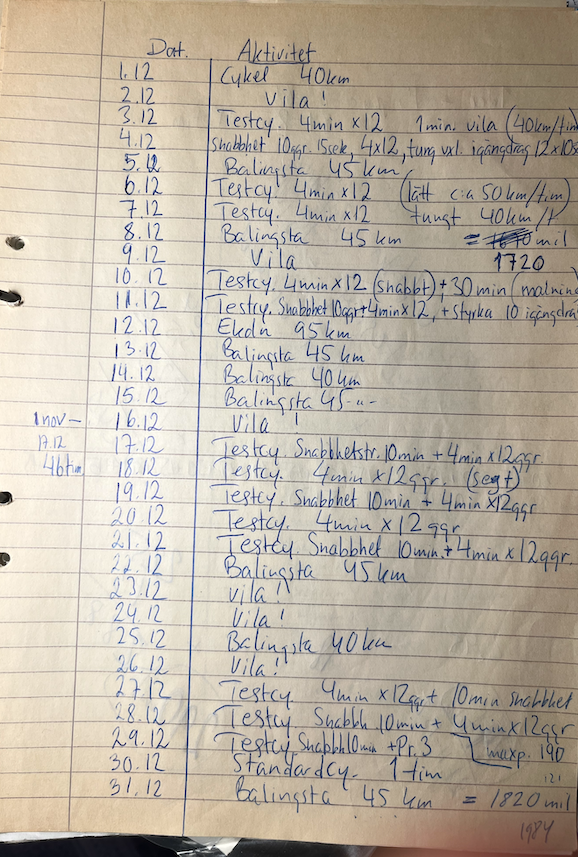 Dat. Aktivitet
1.12 Cykel 40km
2.12 Vila!
3.12 Testcy. 4min x12 1min. vila (40km/tim
4.12 snabbhet 10ggr. 15sek, 4x12, tung vxl. igångdrag 12x10s
5.12 Balingsta 45 km
6.12 Testcy. 4min x12 (lätt c:a 50km/tim)
7.12 Testcy. 4min x12 tungt 40km/t
8.12 Balingsta 45 km = mil
9.12 Vila 1720
10.12 Testcy. 4min x12 (snabbt) + 30 min (malning
11.12 Testcy. Snabbhet 10ggr + 4min x12, + styrka 10 igångdra
12.12 Ekoln 95 km
13.12 Balingsta 45 km
14.12 Balingsta 40km
15.12 Balingsta 45 -"-
1 nov – 16.12 Vila !
17.12 17.12 Testcy. Snabbhetstr. 10min + 4min x12ggr
46tim 18.12 Testcy. 4min x12ggr. (segt)
19.12 Testcy. Snabbhet 10min + 4min x12ggr
20.12 Testcy. 4min x12ggr
21.12 Testcy. Snabbhet 10min. + 4min x12ggr.
22.12 Balingsta 45 km
23.12 Vila!
24.12 Vila!
25.12 Balingsta 40km
26.12 Vila!
27.12 Testcy 4min x12ggr + 10min snabbhet
28.12 Testcy. Snabbh 10min + 4min x12ggr
29.12 Testcy. Snabbh 10min + Pr. 3 maxp. 190
30.12 Standardcy. 1 tim 121
31.12 Balingsta 45 km = 1820 mil
1984